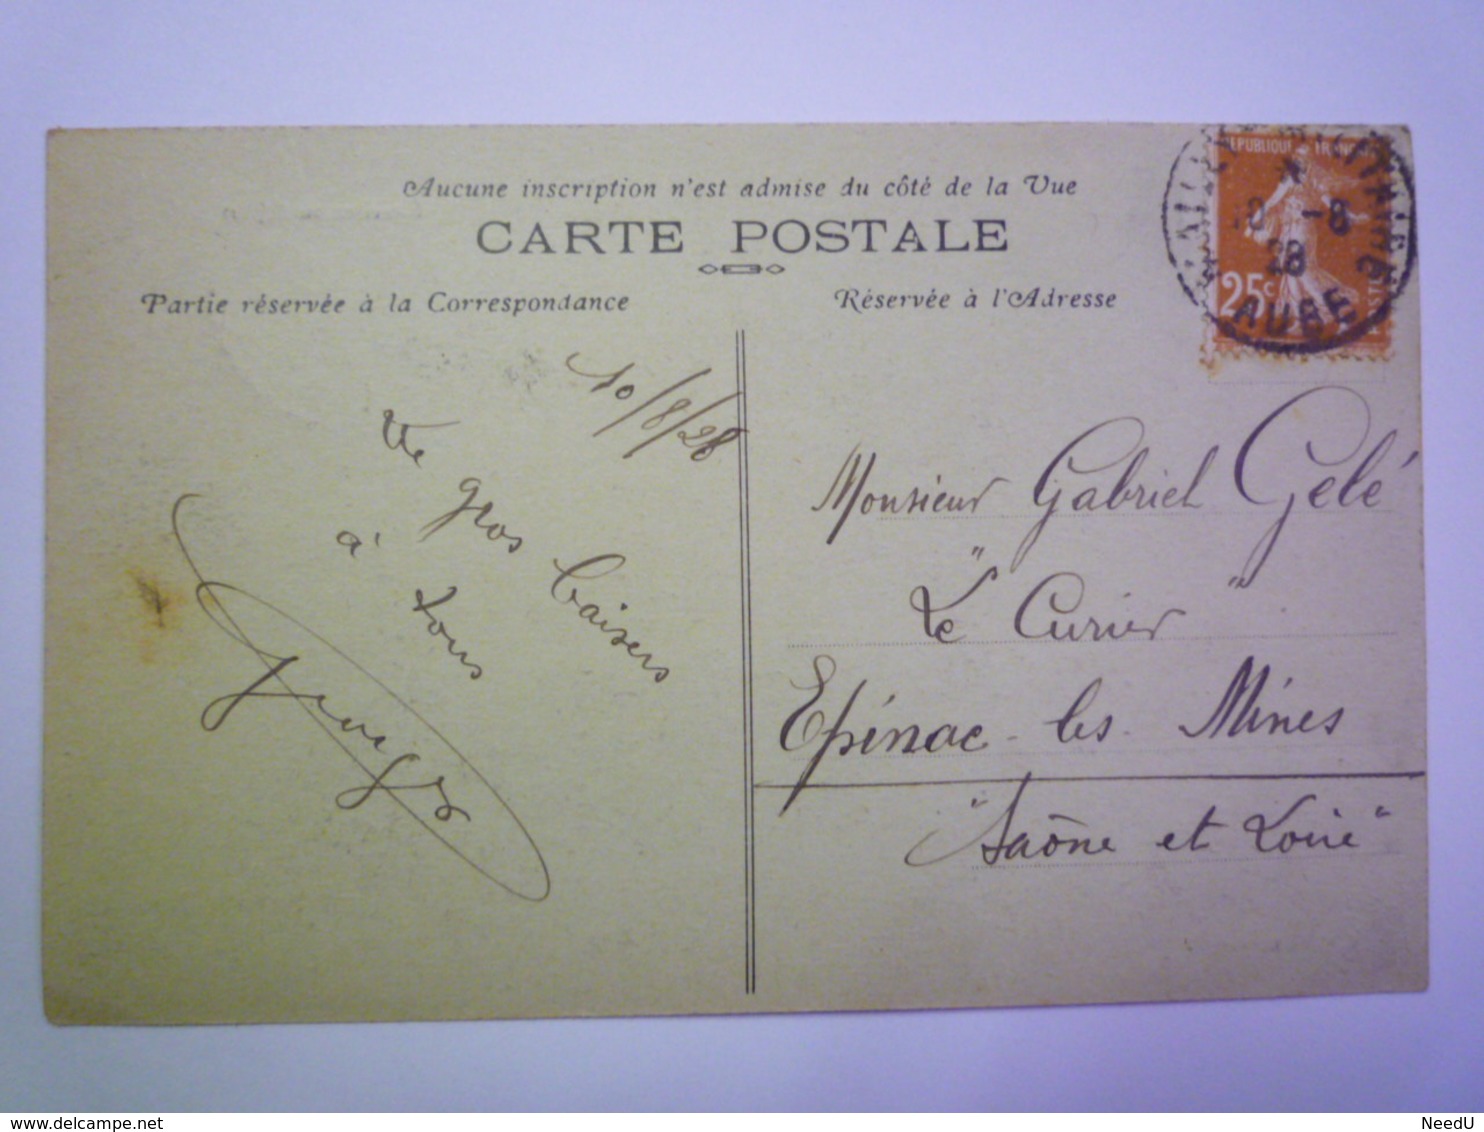 Aucune inscription n'est admise du côté de la Vue
CARTE POSTALE
Partie réservée à la Correspondance
Réservée à l'Adresse
REPUBLIQUE FRANÇ
10 -8
28
25c
AUBE
10/8/28
gros baisers
à tous
Georges
Monsieur Gabriel Gelé
"Le Curier"
Epinac-les-Mines
"Saône et Loire"
www.delcampe.net
NeedU